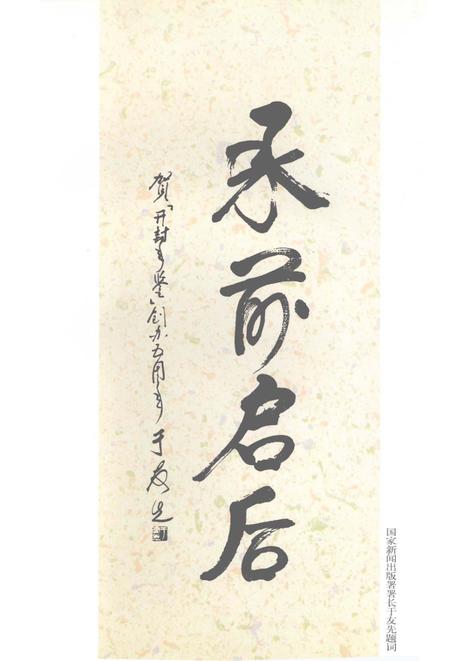 国家新闻出版署署长于友先题词
承前启后
贺《开封年鉴》创办五周年 于友先